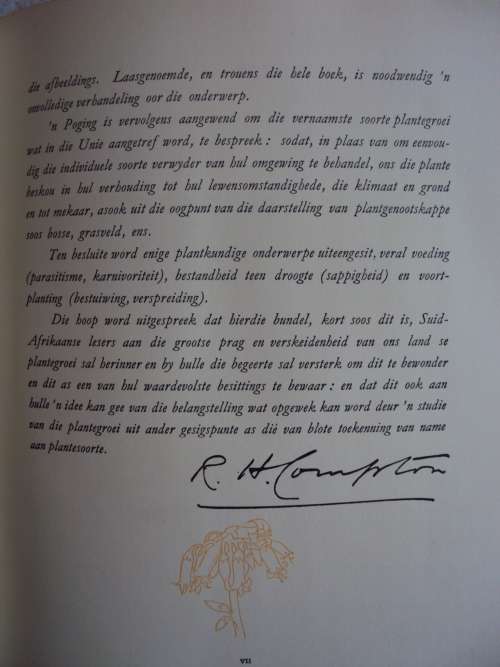 die afbeeldings. Laasgenoemde, en trouens die hele boek, is noodwendig 'n
onvolledige verhandeling oor die onderwerp.
'n Poging is vervolgens aangewend om die vernaamste soorte plantegroei
wat in die Unie aangetref word, te bespreek: sodat, in plaas van om eenvou-
dig die individuele soorte verwyder van hul omgewing te behandel, ons die plante
beskou in hul verhouding tot hul lewensomstandighede, die klimaat en grond
en tot mekaar, asook uit die oogpunt van die daarstelling van plantgenootskappe
soos bosse, grasveld, ens.
Ten besluite word enige plantkundige onderwerpe uiteengesit, veral voeding
(parasitisme, karnivoriteit), bestandheid teen droogte (sappigheid) en voort-
planting (bestuiwing, verspreiding).
Die hoop word uitgespreek dat hierdie bundel, kort soos dit is, Suid-
Afrikaanse lesers aan die grootse prag en verskeidenheid van ons land se
plantegroei sal herinner en by hulle die begeerte sal versterk om dit te bewonder
en dit as een van hul waardevolste besittings te bewaar: en dat dit ook aan
hulle 'n idee kan gee van die belangstelling wat opgewek kan word deur 'n studie
van die plantegroei uit ander gesigspunte as dié van blote toekenning van name
aan plantesoorte.
R. H. Compton
VII